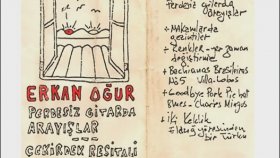 ERKAN OĞUR
PERDESİZ GİTARDA
ARAYIŞLAR
ÇEKİRDEK RESİTALİ
Perdesiz gitarda
arayışlar
+ Makamlarda
gezintiler
+ Renkler - her zaman
değiştirmeli
+ Bachianas Brasileiras
No 5 Villa-Lobos
+ Goodbye Pork Pie hat
Blues - Charles Mingus
+ iki Keklik
Elazığ yöresinden
bir Türkü